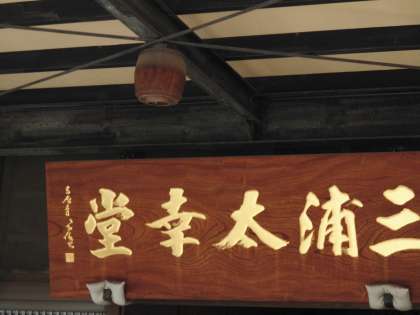 三浦太幸堂